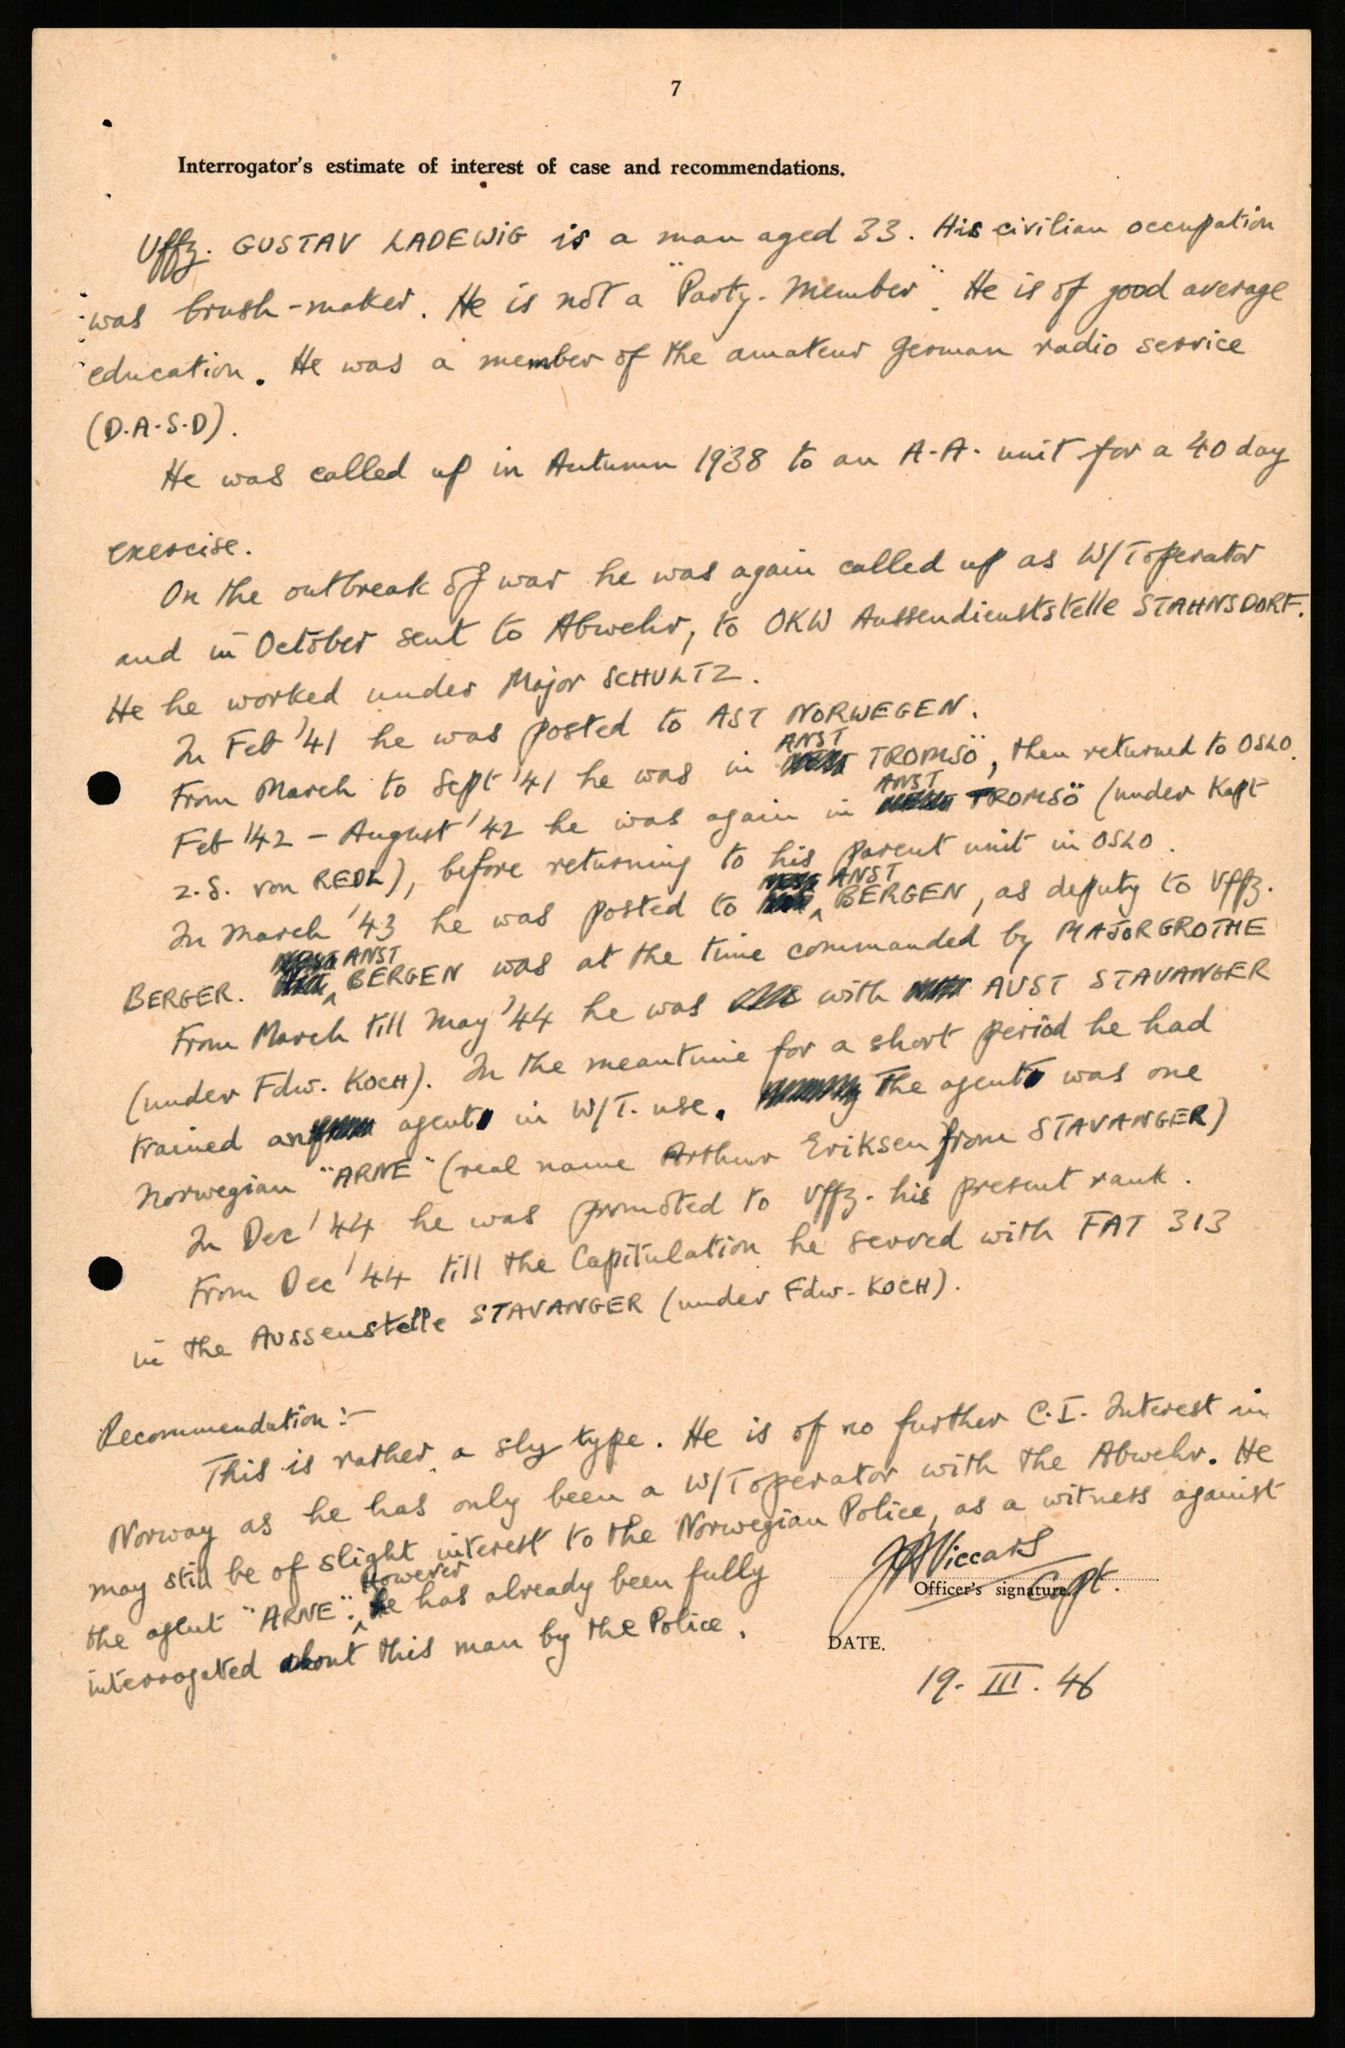 7
Interrogator's estimate of interest of case and recommendations.
Uffz. GUSTAV LADEWIG is a man aged 33. His civilian occupation
was brush-maker. He is not a "Party-Member". He is of good average
education. He was a member of the amateur german radio service
(D.A.S.D).
He was called up in Autumn 1938 to an A.A. unit for a 40 day
exercise.
On the outbreak of war he was again called up as W/Toperator
and in October sent to Abwehr, to OKW Aussendienststelle STAHNSDORF.
He he worked under Major SCHULTZ.
In Feb '41 he was posted to AST NORWEGEN.
From March to Sept '41 he was in ANST TROMSÖ, then returned to OSLO.
Feb '42 - August '42 he was again in ANST TROMSÖ (under Kapt
z.S. von REDL), before returning to his parent unit in OSLO.
In March '43 he was posted to ANST BERGEN, as deputy to Uffz.
BERGER. ANST BERGEN was at the time commanded by MAJOR GROTHE
From March till May '44 he was with AUST STAVANGER
(under Fdw. KOCH). In the meantime for a short period he had
trained an agent in W/T. use. The agent was one
Norwegian "ARNE" (real name Arthur Eriksen from STAVANGER)
In Dec '44 he was promoted to Uffz. his present rank.
From Dec '44 till the Capitulation he served with FAT 313
in the Aussenstelle STAVANGER (under Fdw. KOCH).
Recommendation :-
This is rather a sly type. He is of no further C.I. Interest in
Norway as he has only been a W/Toperator with the Abwehr. He
may still be of slight interest to the Norwegian Police, as a witness against
the agent "ARNE". However he has already been fully
interrogated about this man by the Police.
JAViccars
Capt.
Officer's signature.
DATE.
19. III. 46